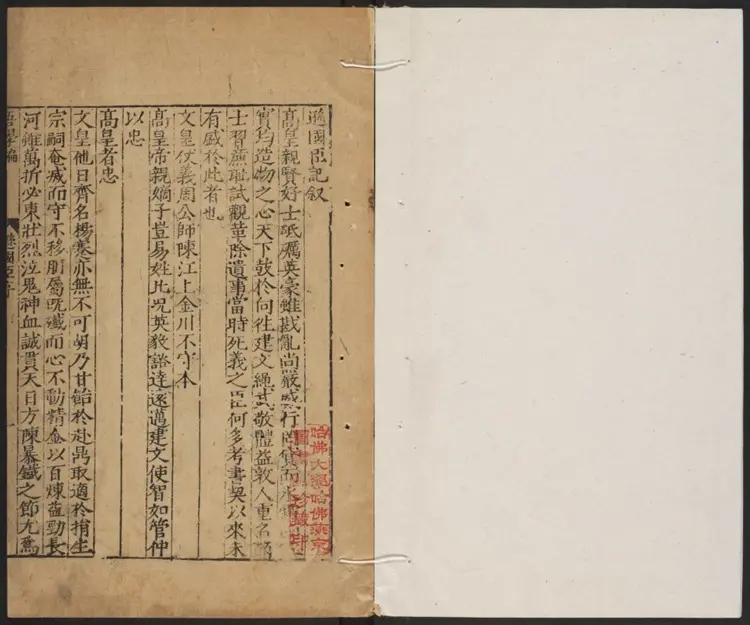 遜國臣記叙
高皇親賢好士砥礪英豪雖戡亂尚嚴威行罔貸而
實均造物之心天下鼓於向徃建文繩武敬體益敦人重名節
士習亷耻試觀革除遺事當時死義之臣何多考書契以來未
有盛於此者也
文皇仗義周公師陳江上金川不守本
高皇帝親嫡子豈易姓比況英毅豁達遠邁建文使智如管仲
以忠
高皇者忠
文皇他日齊名楊蹇亦無不可胡乃甘飴於赴鼎取適於捐生
宗嗣奄滅而守不移朋屬旣殲而心不動精金以百煉益勁長
河雖萬折必東壯烈泣鬼神血誠貫天日方陳暴鐵之節尤爲
吾學編
遜國臣序
哈佛大學哈佛燕京
圖書館珍藏印